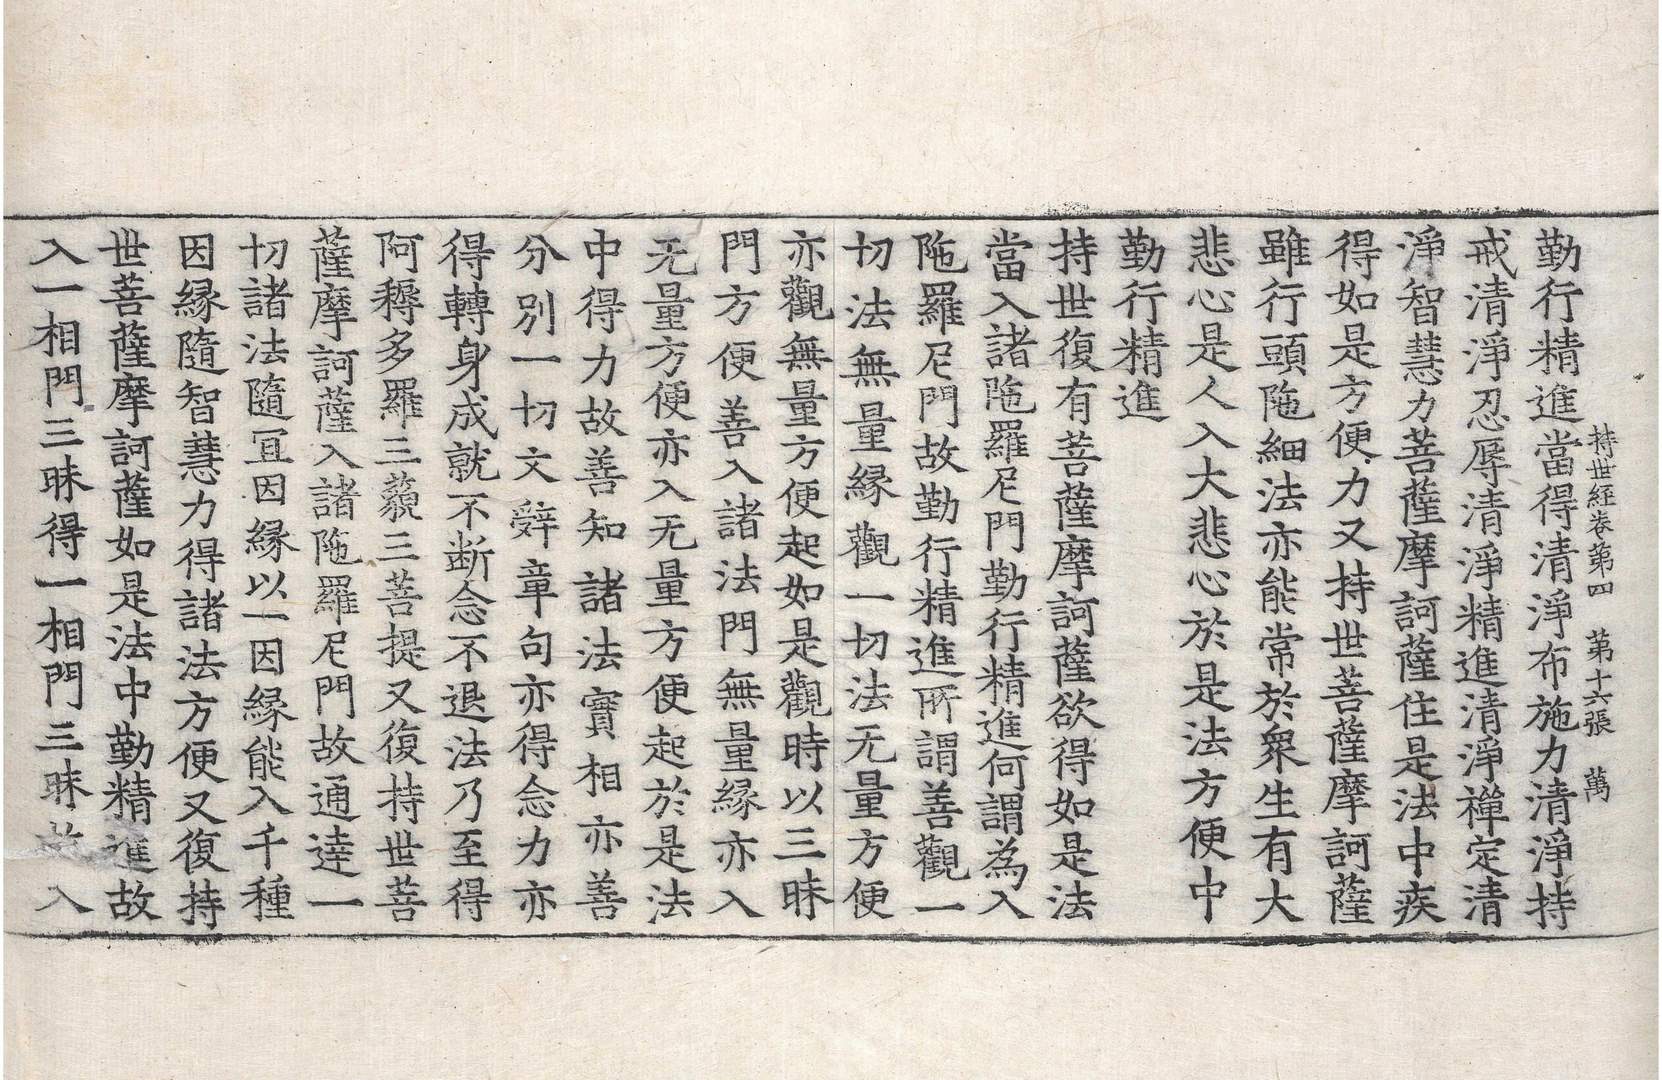 持世經卷第四 第十六張 萬
勤行精進當得清淨布施力清淨持
戒清淨忍辱清淨精進清淨禪定清
淨智慧力菩薩摩訶薩住是法中疾
得如是方便力又持世菩薩摩訶薩
雖行頭陁細法亦能常於衆生有大
悲心是人入大悲心於是法方便中
勤行精進
持世復有菩薩摩訶薩欲得如是法
當入諸陁羅尼門勤行精進何謂為入
陁羅尼門故勤行精進所謂善觀一
切法無量緣觀一切法无量方便
亦觀無量方便起如是觀時以三昧
門方便善入諸法門無量緣亦入
无量方便亦入无量方便起於是法
中得力故善知諸法實相亦善
分別一切文辤章句亦得念力亦
得轉身成就不断念不退法乃至得
阿耨多羅三藐三菩提又復持世菩
薩摩訶薩入諸陁羅尼門故通達一
切諸法隨冝因緣以一因緣能入千種
因緣隨智慧力得諸法方便又復持
世菩薩摩訶薩如是法中勤精進故
入一相門三昧得一相門三昧入